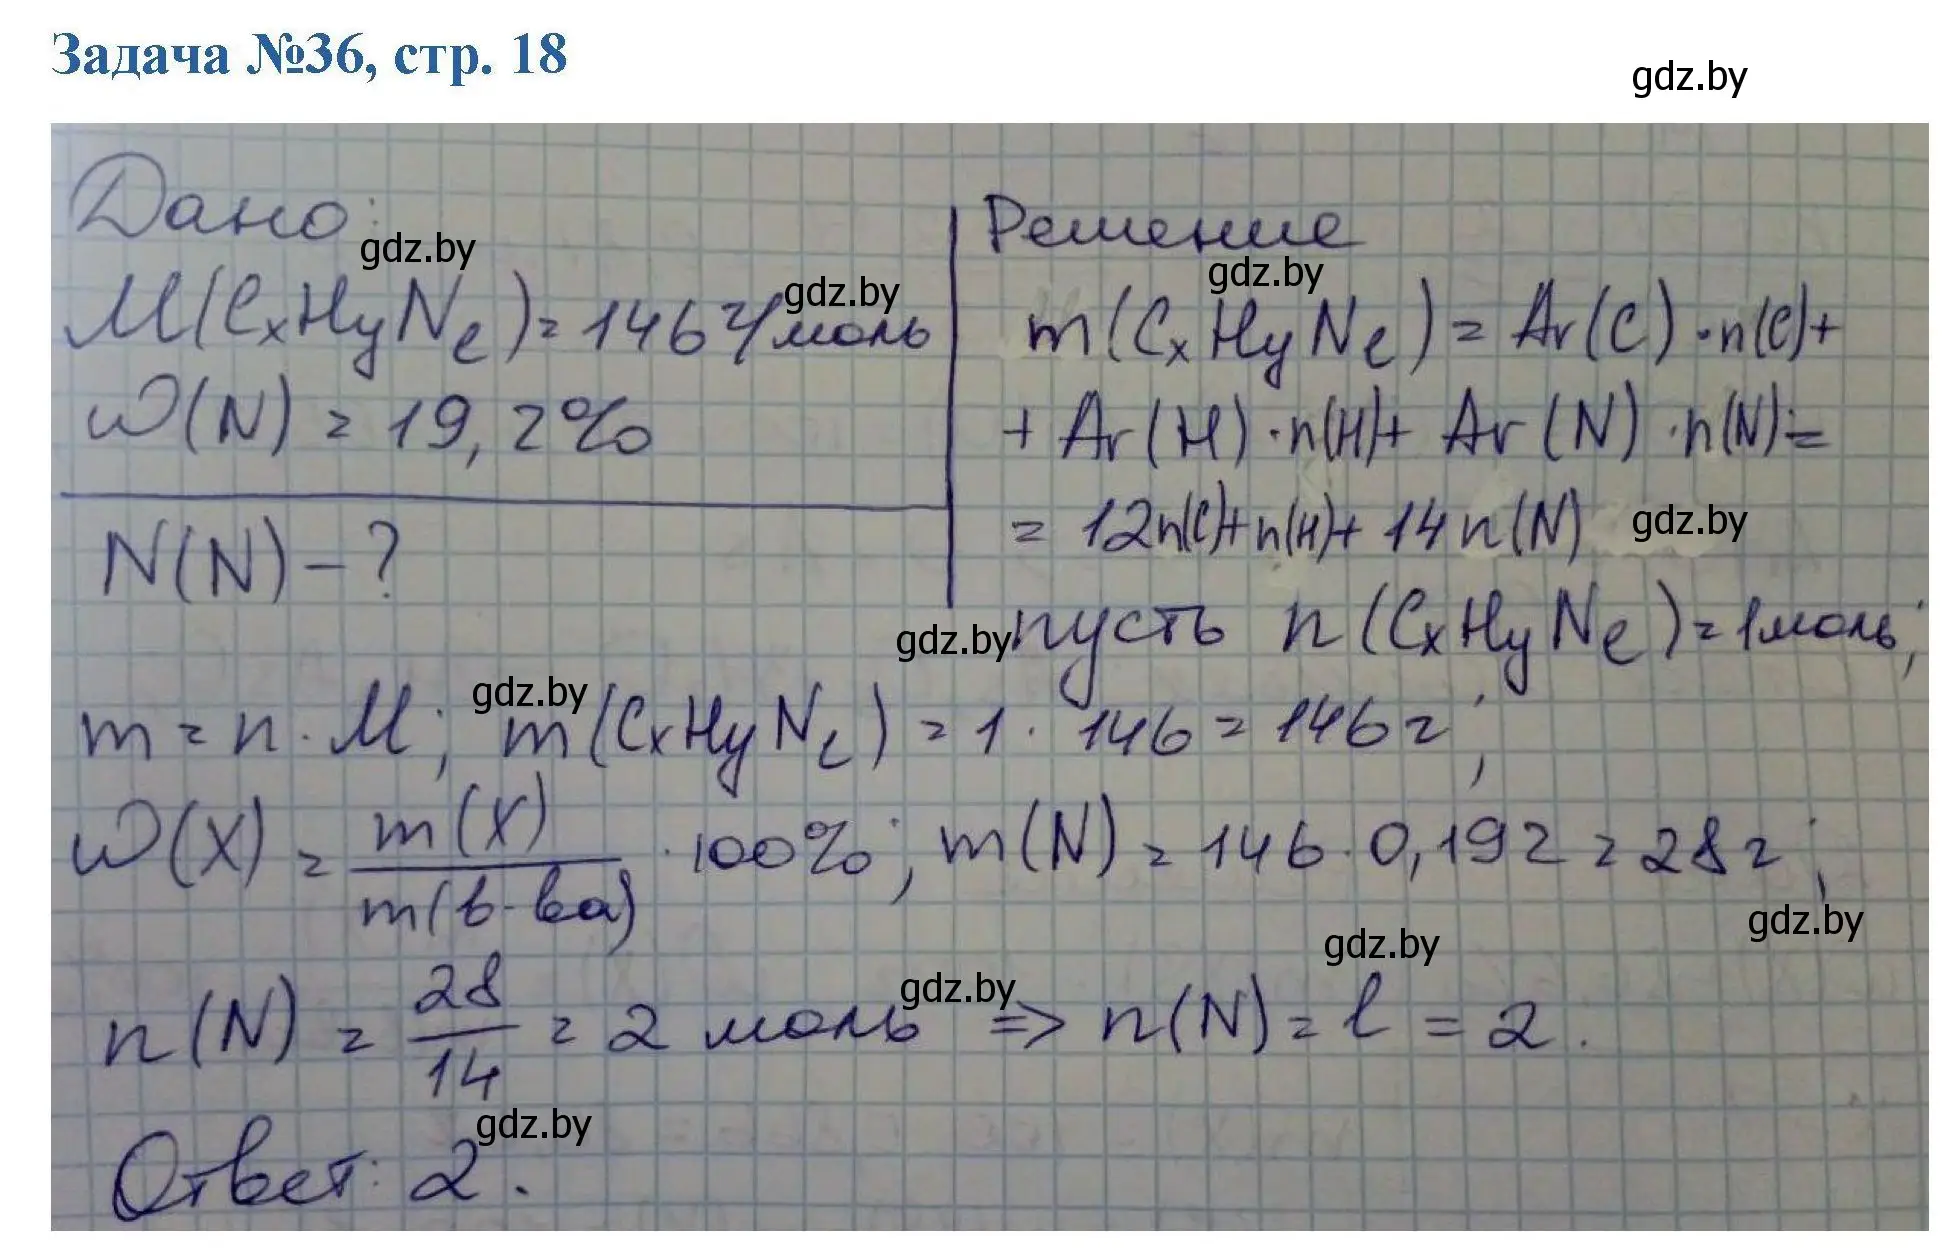 Задача №36, стр. 18
gdz.by
Дано:
gdz.by
M(CxHyNe) = 146 г/моль
gdz.by
w(N) = 19,2%
N(N) - ?
Решение
gdz.by
m(CxHyNe) = Ar(C) · n(C) +
+ Ar(H) · n(H) + Ar(N) · n(N) =
= 12n(C) + n(H) + 14n(N)
gdz.by
gdz.by
пусть n(CxHyNe) = 1 моль;
gdz.by
m = n · M; m(CxHyNe) = 1 · 146 = 146 г;
w(X) = m(X) / m(в-ва) · 100%; m(N) = 146 · 0,192 = 28 г;
gdz.by
gdz.by
gdz.by
n(N) = 28/14 = 2 моль => n(N) = l = 2.
gdz.by
Ответ: 2.